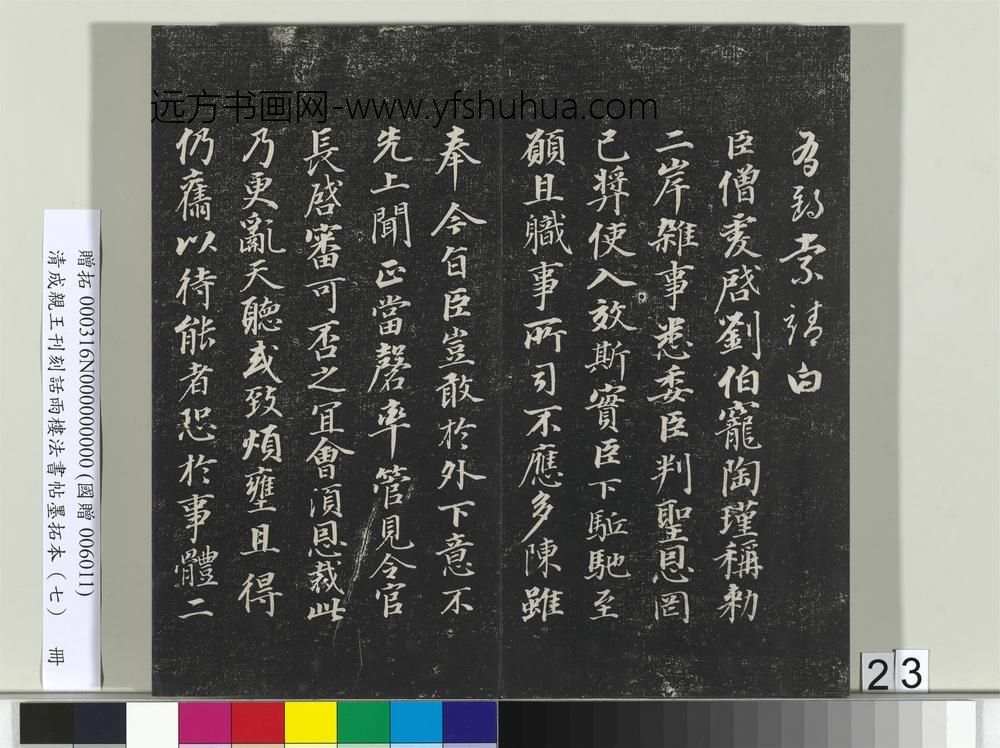 远方书画网-www.yfshuhua.com
為䚯崇靖白
臣僧虔啓劉伯寵陶瑾稱勑
二岸雜事悉委臣判聖恩罔
已獎使入放斯實臣下駈馳至
願且職事所司不應多陳雖
奉今旨臣豈敢於外下意不
先上聞正當罄率管見令官
長啓審可否之冝會湏恩裁此
乃更亂天聽或致煩壅且得
仍舊以待能者恐於事體二
贈拓 000316N000000000(國贈 006011)
清成親王刊刻話雨樓法書帖墨拓本(七) 冊
23